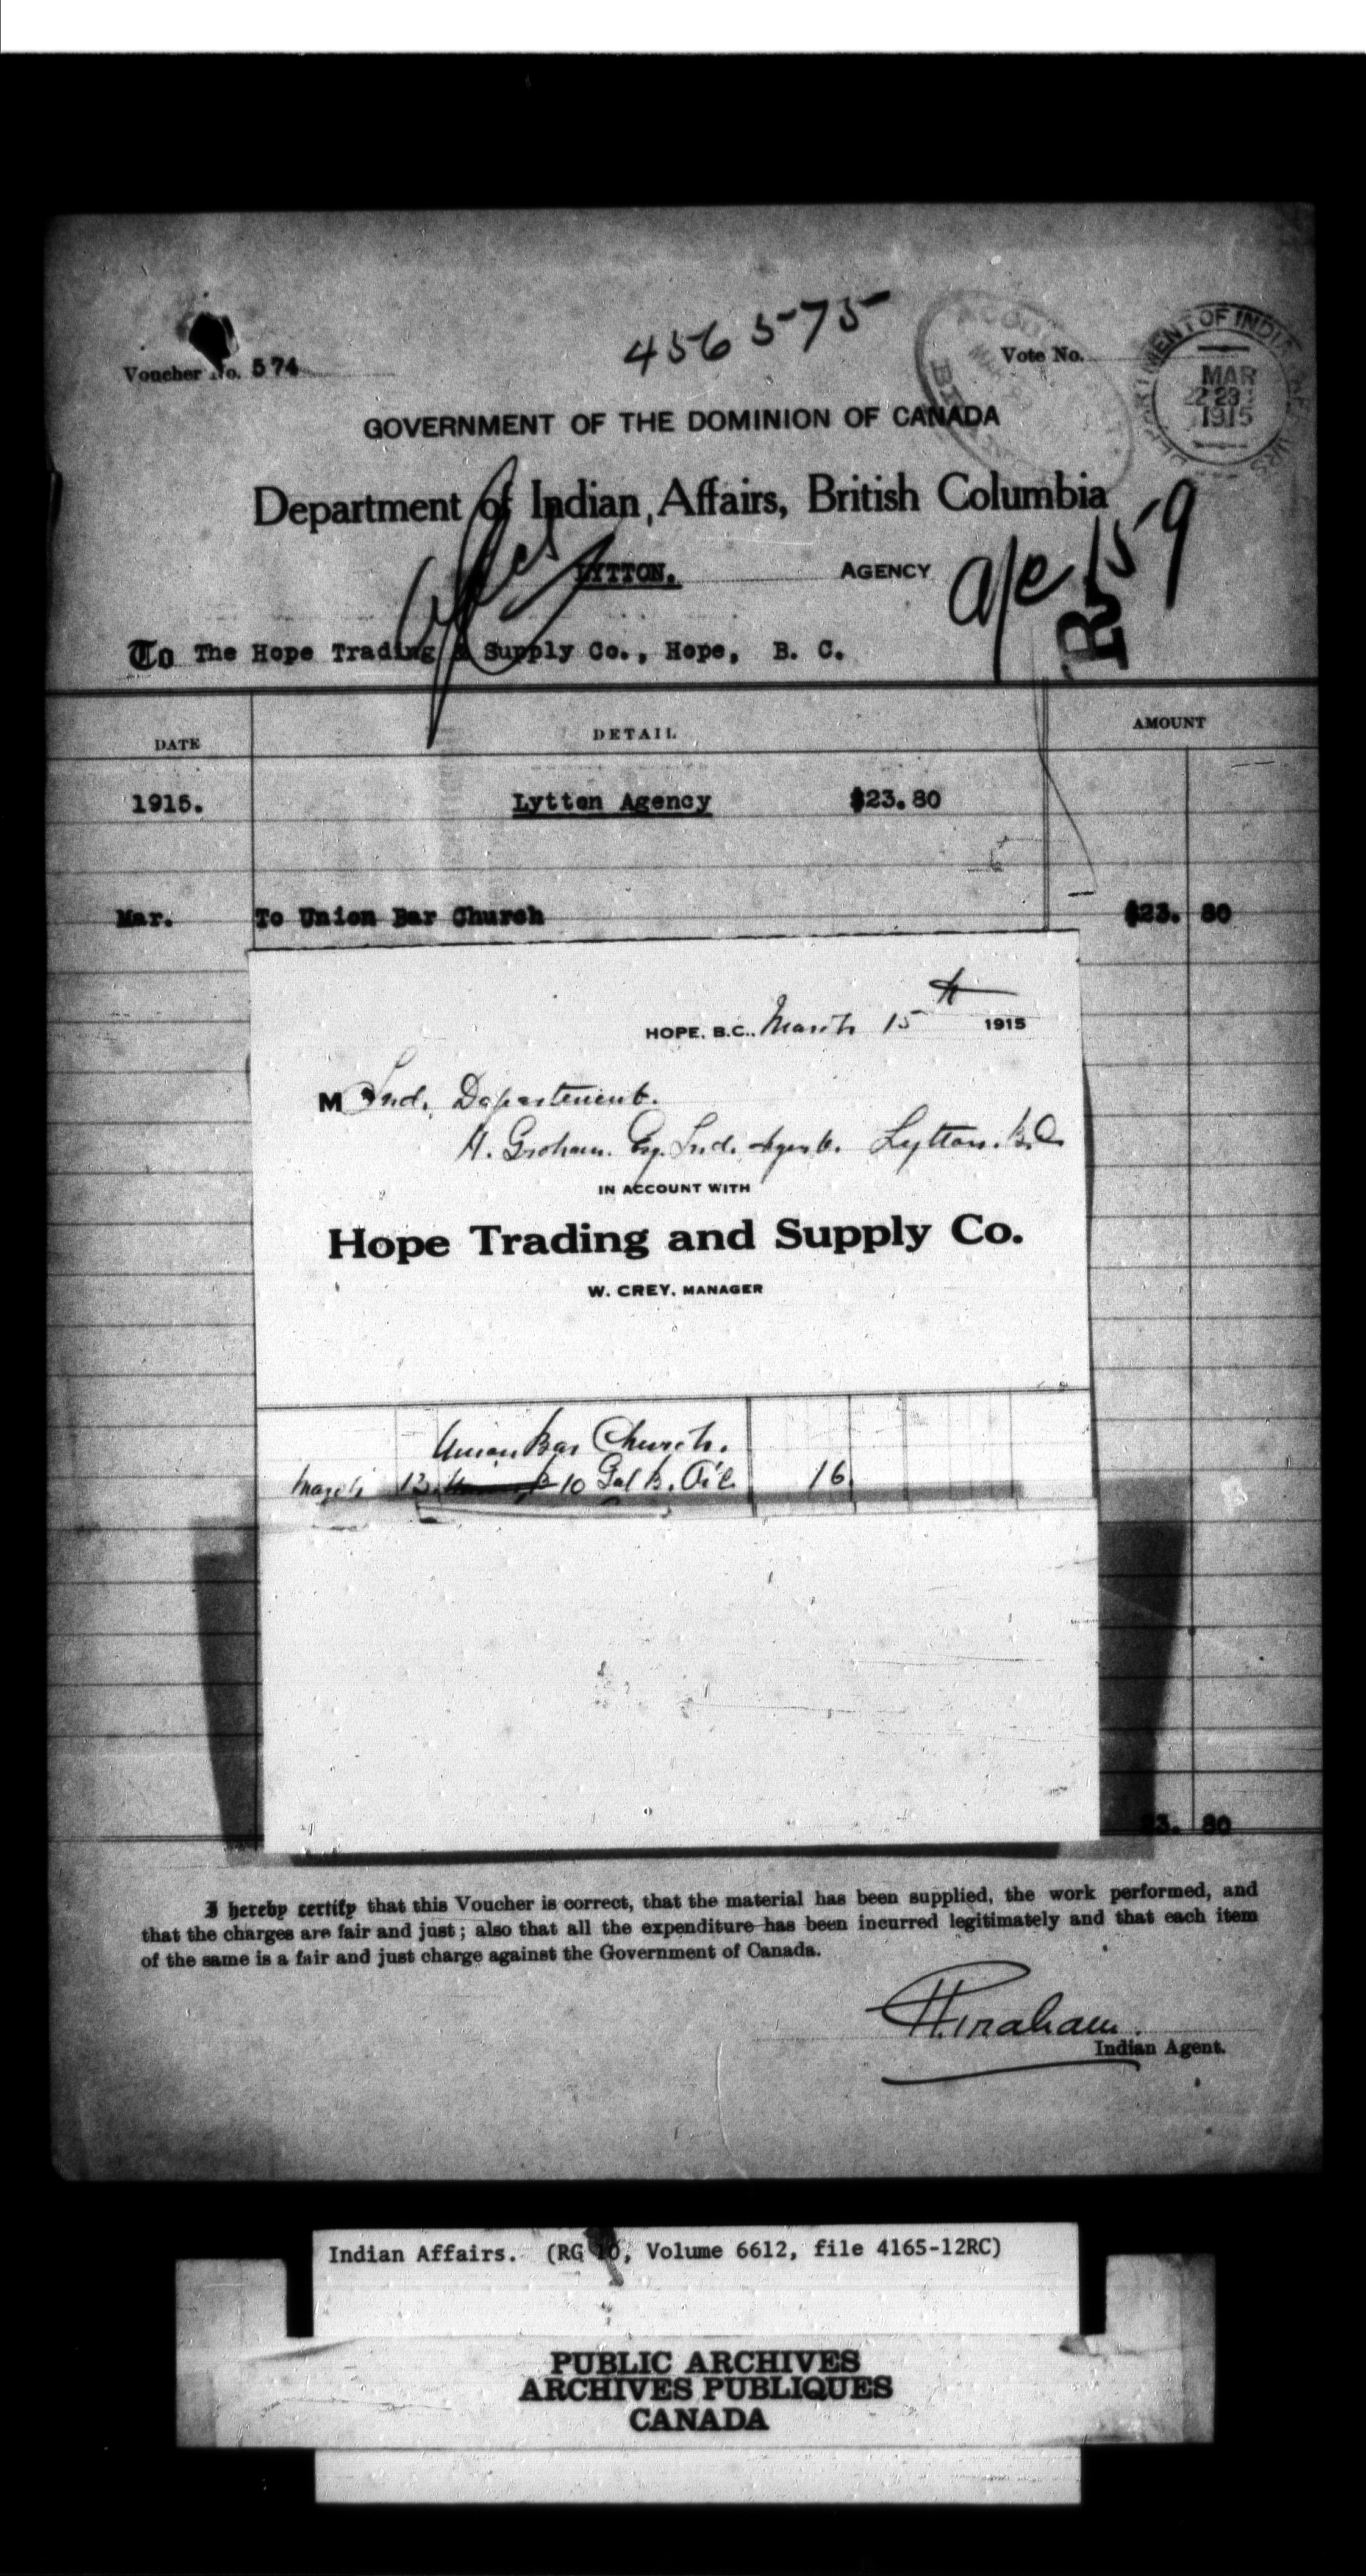 456575
Voucher No. 574
Vote No.
DEPARTMENT OF INDIAN AFFAIRS
MAR
22 23
1915
GOVERNMENT OF THE DOMINION OF CANADA
Department of Indian Affairs, British Columbia
LYTTON. AGENCY
a/c 159
R
To The Hope Trading & Supply Co., Hope, B. C.
DATE DETAIL AMOUNT
1915. Lytton Agency $23.80
Mar. To Union Bar Church $23. 80
HOPE, B.C., March 15th 1915
M Ind. Department.
H. Graham. Esq. Ind. Agent. Lytton. B.C.
IN ACCOUNT WITH
Hope Trading and Supply Co.
W. CREY, MANAGER
Union Bar Church.
March 13. 10 Gal B. Oil 16
23. 80
I hereby certify that this Voucher is correct, that the material has been supplied, the work performed, and
that the charges are fair and just; also that all the expenditure has been incurred legitimately and that each item
of the same is a fair and just charge against the Government of Canada.
H. Graham.
Indian Agent.
Indian Affairs. (RG 10, Volume 6612, file 4165-12RC)
PUBLIC ARCHIVES
ARCHIVES PUBLIQUES
CANADA